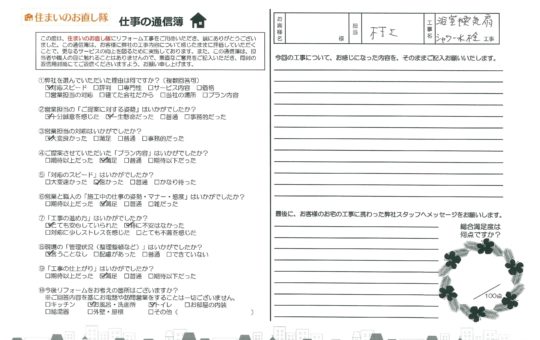 住まいのお直し隊
仕事の通信簿
この度は、住まいのお直し隊にリフォーム工事をご用命いただき、誠にありがとうござい
ました。この通信簿は、お客様に弊社の工事内容について感じたままに評価していただく
①弊社を選んでいただいた理由は何ですか？（複数回答可）
対応スピード □評判 □専門性 □サービス内容 □価格
□営業担当の対応 □建てた会社だから □当社の場所 □プラン内容
②営業担当の「ご提案に対する姿勢」はいかがでしたか？
十分誠意を感じた 一生懸命だった □普通 □事務的だった
③営業担当の対応はいかがでしたか？
大変良かった □満足 □普通 □事務的だった
④ご提案させていただいた「プラン内容」はいかがでしたか？
□期待以上だった 満足 □普通 □期待以下だった
⑤「対応のスピード」はいかがでしたか？
□大変速かった 速かった □普通 □かなり待った
⑥営業と職人の「施工中の仕事の姿勢・マナー・態度」はいかがでしたか？
□期待以上だった 満足 □普通 □期待以下だった
⑦「工事の進め方」はいかがでしたか？
とても安心していられた 特に不安はなかった
□対応に少しストレスを感じた □とても不満を感じた
⑧現場の「管理状況（整理整頓など）」はいかがでしたか？
言うことなし □配慮があった □普通 □できていない
⑨「工事の仕上がり」はいかがでしたか？
□期待以上だった 満足 □普通 □期待以下だった
⑩今後リフォームをお考えの箇所はございますか？
※ご回答内容を基にお電話や訪問営業をすることは一切ございません。
□キッチン お風呂・洗面所 トイレ □お部屋の内装
□給湯器 □外壁・屋根 □その他（ ）
お客様名 様
担当 村上
工事名 浴室換気扇
シャワー水栓 工事
今回の工事について、お感じになった内容を、そのままご記入お願いいたします。
最後に、お客様のお宅の工事に携わった弊社スタッフへメッセージをお願いします。
総合満足度は
何点ですか？
/100点